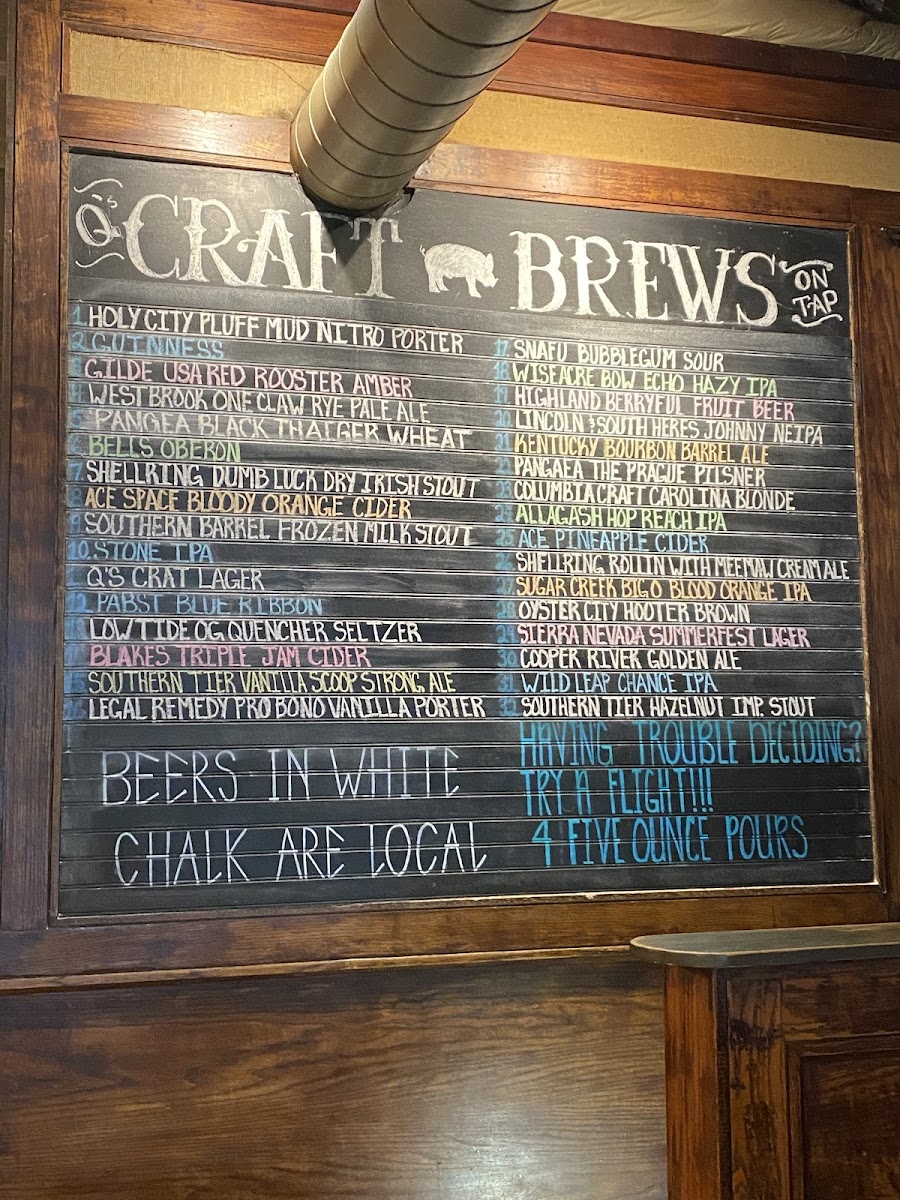 Q's CRAFT BREWS ON TAP
1 HOLY CITY PLUFF MUD NITRO PORTER
2 GUINNESS
3 GILDE USA RED ROOSTER AMBER
4 WESTBROOK ONE CLAW RYE PALE ALE
5 PANGEA BLACK THAIGER WHEAT
6 BELLS OBERON
7 SHELLRING DUMB LUCK DRY IRISH STOUT
8 ACE SPACE BLOODY ORANGE CIDER
9 SOUTHERN BARREL FROZEN MILK STOUT
10. STONE IPA
11 Q'S CRAT LAGER
12 PABST BLUE RIBBON
13 LOW TIDE OG QUENCHER SELTZER
14 BLAKES TRIPLE JAM CIDER
15 SOUTHERN TIER VANILLA SCOOP STRONG ALE
16 LEGAL REMEDY PRO BONO VANILLA PORTER
17. SNAFU BUBBLEGUM SOUR
18 WISEACRE BOW ECHO HAZY IPA
19 HIGHLAND BERRYFUL FRUIT BEER
20 LINCOLN & SOUTH HERES JOHNNY NEIPA
21 KENTUCKY BOURBON BARREL ALE
22 PANGAEA THE PRAGUE PILSNER
23 COLUMBIA CRAFT CAROLINA BLONDE
24 ALLAGASH HOP REACH IPA
25 ACE PINEAPPLE CIDER
26 SHELLRING ROLLIN WITH MEEMAW CREAM ALE
27 SUGAR CREEK BIG O BLOOD ORANGE IPA
28 OYSTER CITY HOOTER BROWN
29 SIERRA NEVADA SUMMERFEST LAGER
30 COOPER RIVER GOLDEN ALE
31 WILD LEAP CHANCE IPA
32 SOUTHERN TIER HAZELNUT IMP. STOUT
BEERS IN WHITE
CHALK ARE LOCAL
HAVING TROUBLE DECIDING?
TRY A FLIGHT!!!
4 FIVE OUNCE POURS